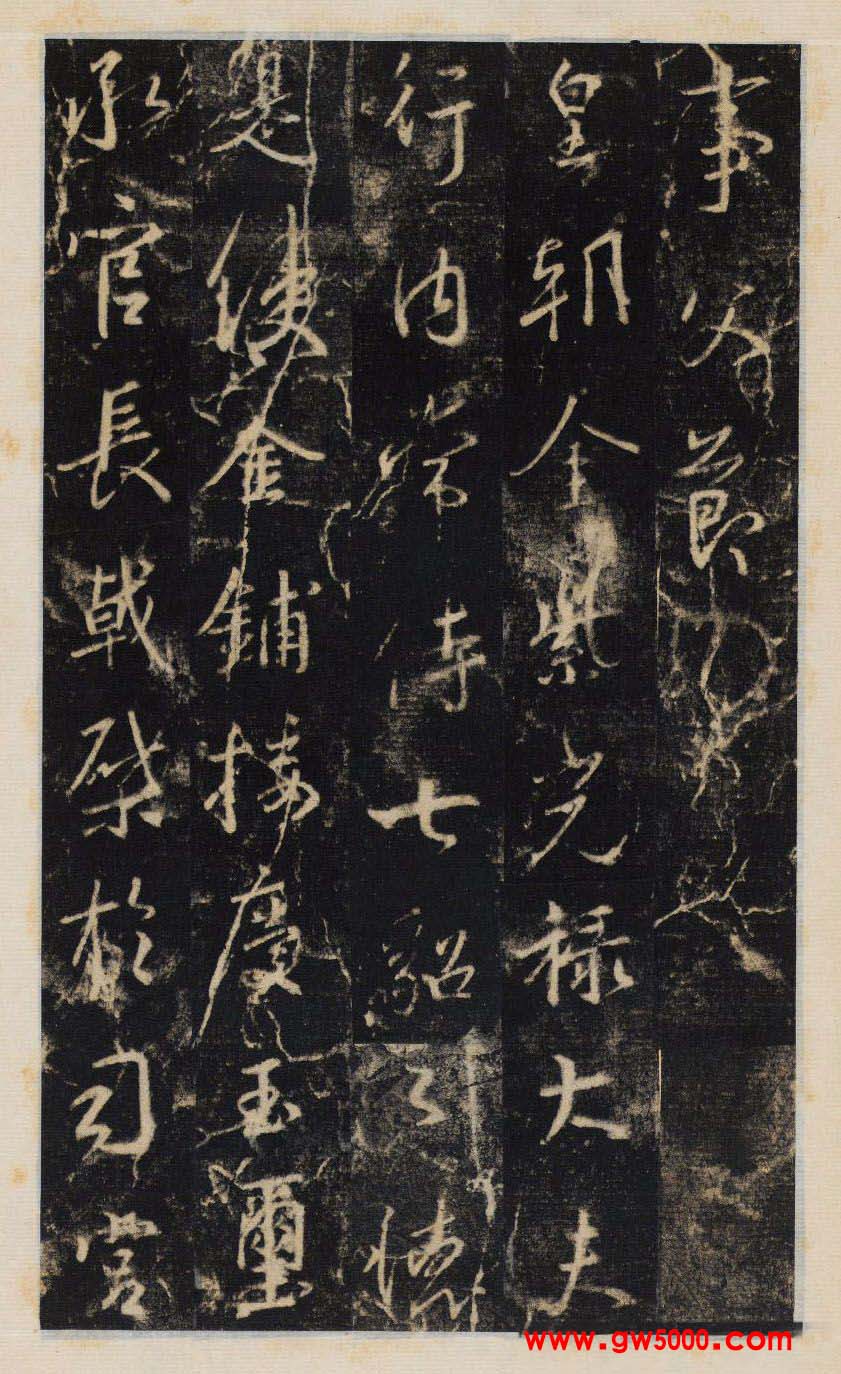 事父節
皇朝金紫光祿大夫
行內常侍七貂引
金鋪接慶玉璽
承官長戟棨於司宮
www.gw5000.com